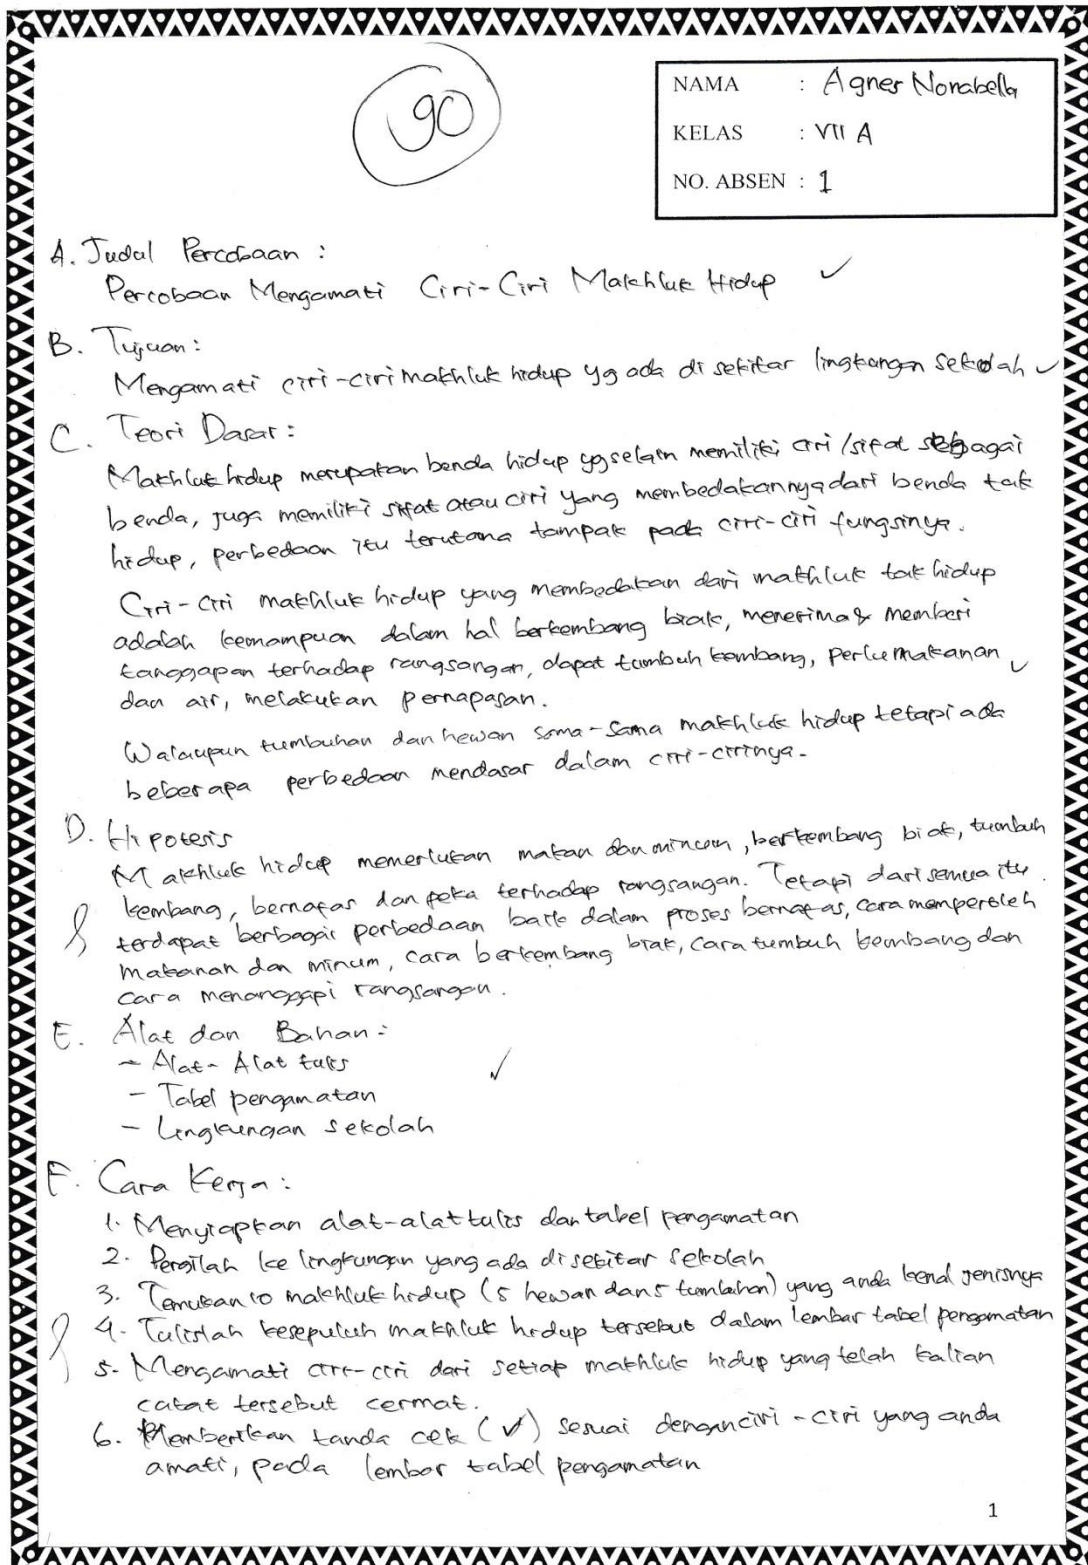 90
NAMA : Agnes Norabella
KELAS : VII A
NO. ABSEN : 1
A. Judul Percobaan :
Percobaan Mengamati Ciri-Ciri Makhluk Hidup ✓
B. Tujuan :
Mengamati ciri-ciri makhluk hidup yg ada di sekitar lingkungan sekolah ✓
C. Teori Dasar :
Makhluk hidup merupakan benda hidup yg selain memiliki ciri/sifat sebagai
benda, juga memiliki sifat atau ciri yang membedakannya dari benda tak
hidup, perbedaan itu terutama tampak pada ciri-ciri fungsinya.
Ciri-ciri makhluk hidup yang membedakan dari makhluk tak hidup
adalah kemampuan dalam hal berkembang biak, menerima & memberi
tanggapan terhadap rangsangan, dapat tumbuh kembang, perlu makanan ✓
dan air, melakukan pernapasan.
Walaupun tumbuhan dan hewan sama-sama makhluk hidup tetapi ada
beberapa perbedaan mendasar dalam ciri-cirinya.
D. Hipotesis
Makhluk hidup memerlukan makan dan minum, berkembang biak, tumbuh
kembang, bernafas dan peka terhadap rangsangan. Tetapi dari semua itu
terdapat berbagai perbedaan baik dalam proses bernafas, cara memperoleh
makanan dan minum, cara berkembang biak, cara tumbuh kembang dan
cara menanggapi rangsangan.
E. Alat dan Bahan :
- Alat-Alat tulis ✓
- Tabel pengamatan
- Lingkungan sekolah
F. Cara Kerja :
1. Menyiapkan alat-alat tulis dan tabel pengamatan
2. Pergilah ke lingkungan yang ada di sekitar sekolah
3. Temukan 10 makhluk hidup (5 hewan dan 5 tumbuhan) yang anda kenal jenisnya
4. Tulislah kesepuluh makhluk hidup tersebut dalam lembar tabel pengamatan
5. Mengamati ciri-ciri dari setiap makhluk hidup yang telah kalian
catat tersebut cermat.
6. Memberikan tanda cek (✓) sesuai dengan ciri-ciri yang anda
amati, pada lembar tabel pengamatan
1